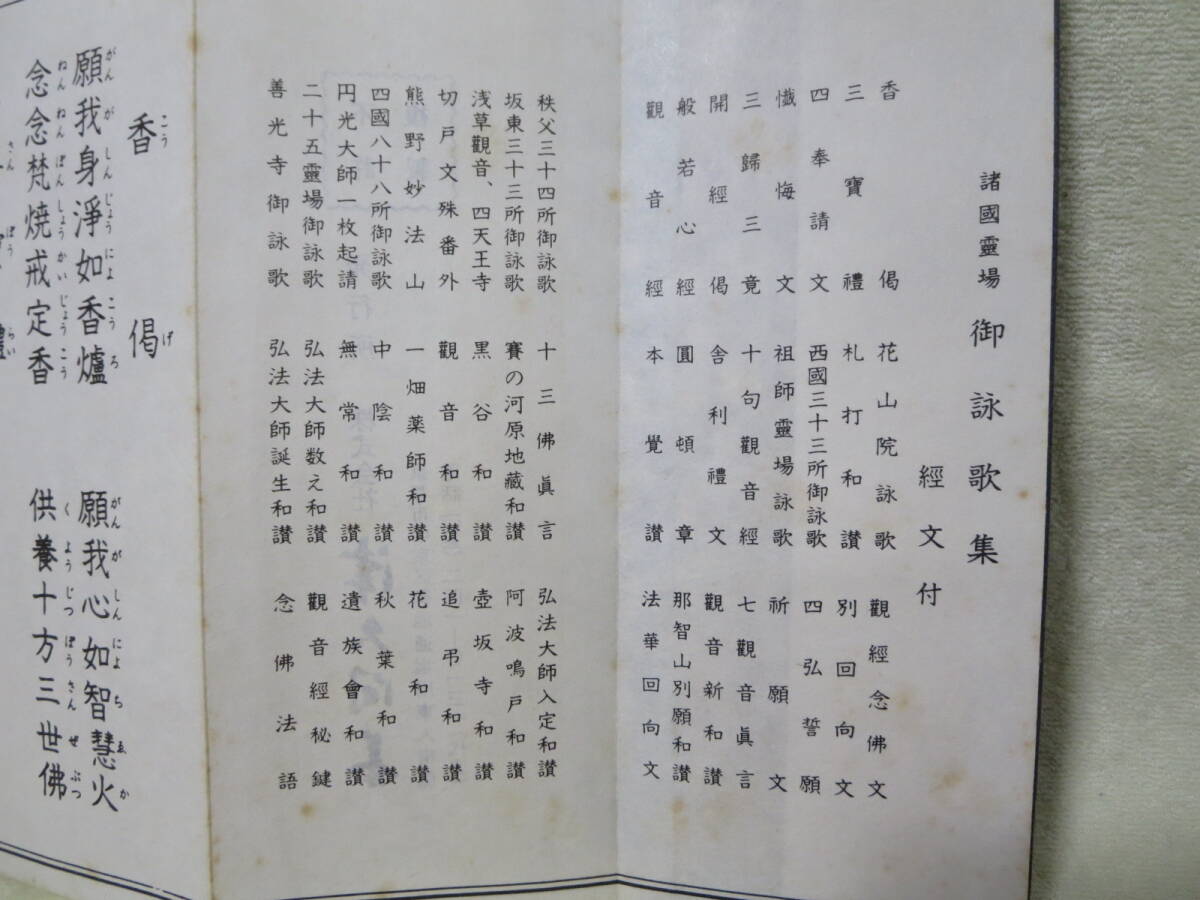 諸國靈場 御詠歌集
經文付
香偈 花山院詠歌 觀經念佛文
三寶禮 札打和讃 別回向文
四奉請文 西國三十三所御詠歌 四弘誓願
懺悔文 祖師靈場詠歌 祈願文
三歸三竟 十句觀音經 七觀音眞言
開經偈 舎利禮文 觀音新和讃
般若心經 圓頓章 那智山別願和讃
觀音經 本覺讃 法華回向文
秩父三十四所御詠歌 十三佛眞言 弘法大師入定和讃
坂東三十三所御詠歌 賽の河原地藏和讃 阿波鳴戸和讃
浅草觀音、四天王寺 黒谷和讃 壺坂寺和讃
切戸文殊番外 觀音和讃 追弔和讃
熊野妙法山 一畑薬師和讃 花和讃
四國八十八所御詠歌 中陰和讃 秋葉和讃
円光大師一枚起請 無常和讃 遺族會和讃
二十五靈場御詠歌 弘法大師数え和讃 觀音經秘鍵
善光寺御詠歌 弘法大師誕生和讃 念佛法語
香偈
こうげ
願我身淨如香爐 願我心如智慧火
がんがしんじょうによこうろ がんがしんによちゑか
念念梵焼戒定香 供養十方三世佛
ねんねんぼんしょうかいじょうこう くようじつぽうさんぜぶつ